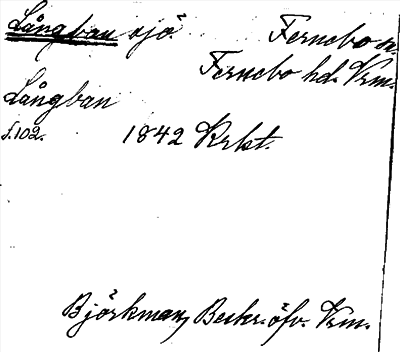 Långban sjö. Fernebo n.
Fernebo hd. Vrm.
Långban
s. 102. 1842 Krkt.
Björkman, Beskr. öfv. Vrm.